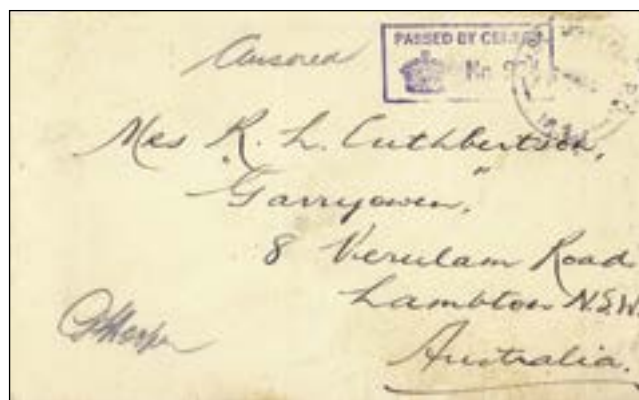 Censored
PASSED BY CENSOR
No.
Mrs R. L. Cuthbertson,
"Garryowen,"
8 Verulam Road
Lambton N.S.W.
Australia.